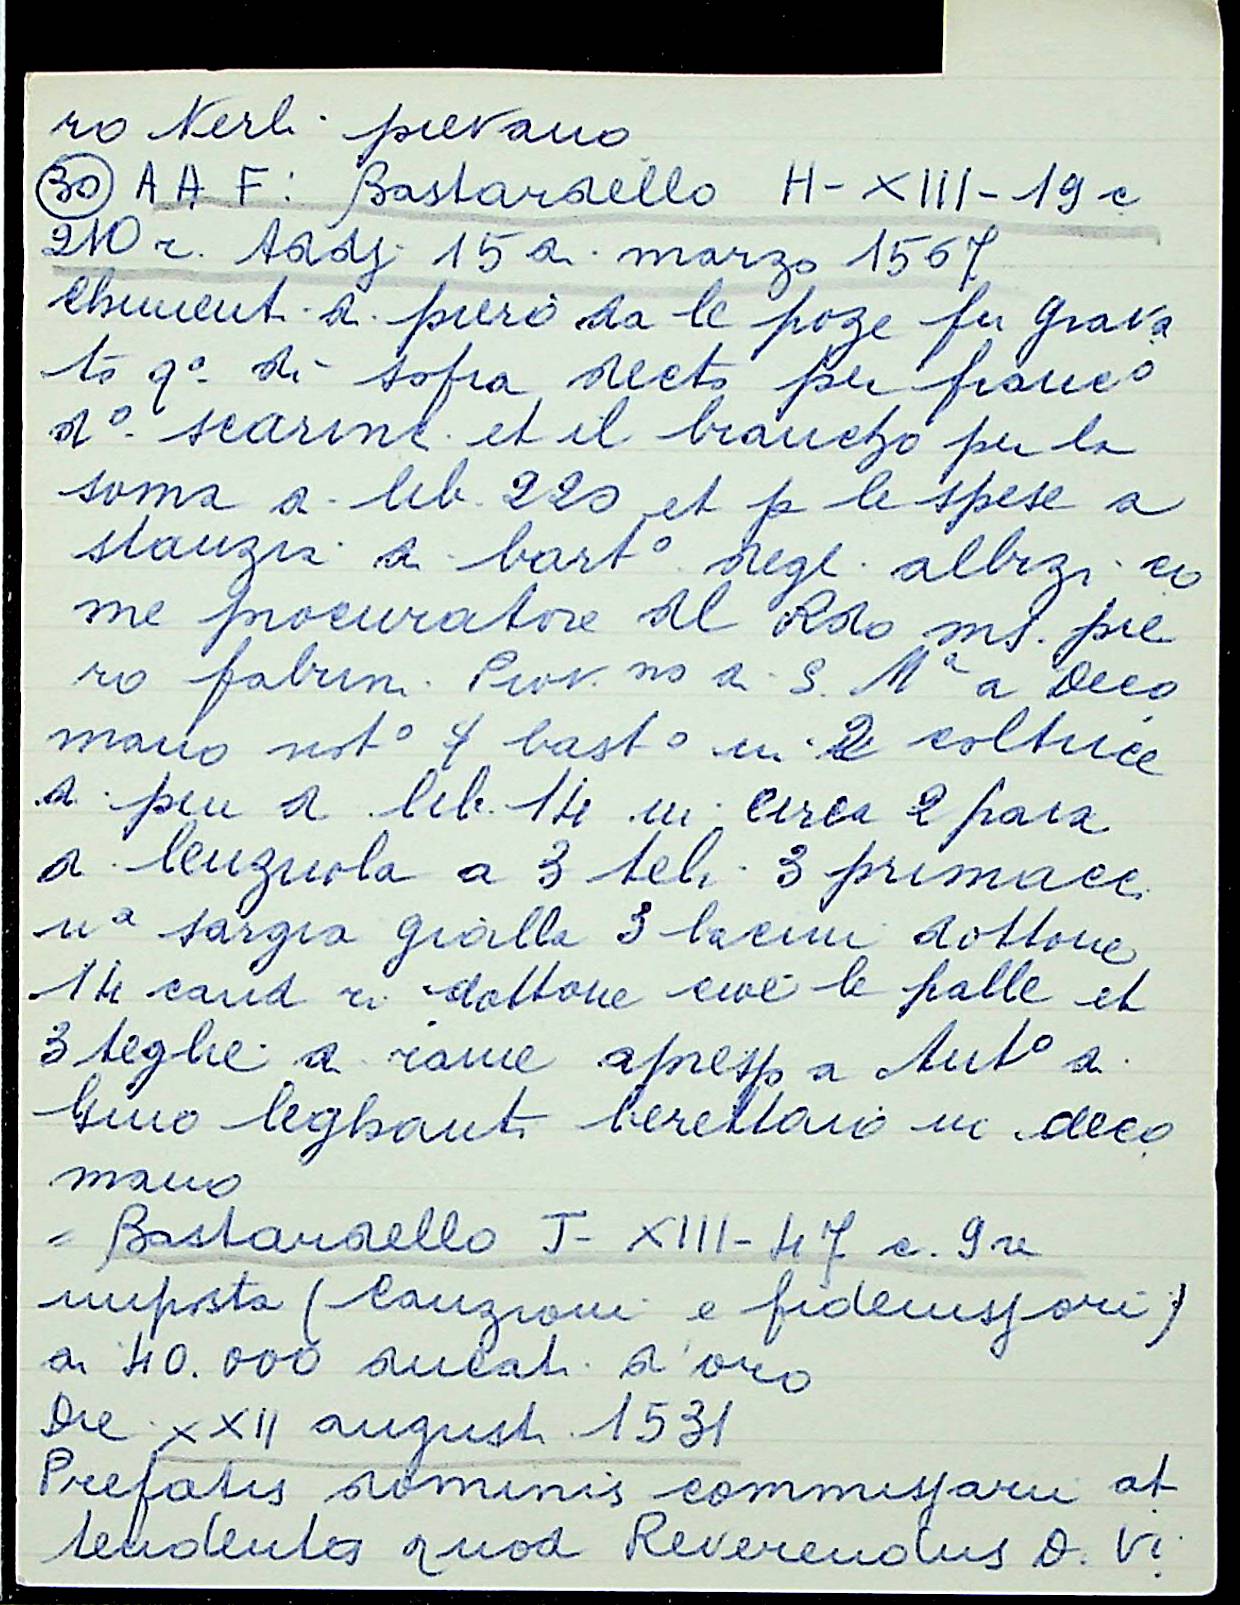 ro Nerli pievano
30 A A F: Bastardello H-XIII-19 c
210 r. Addj 15 di marzo 1567
Chiment di piero da le poze fu grava
to q° di sopra decto per franc°
d° scarini et il brancho per la
soma di lib. 220 et p le spese a
stanzia di bart° degl albizi co
me procuratore del Rdo ms. pie
ro fabrini Piov.no di S. Mª a Deco
mano not° 4 bast° in 2 coltrice
di piu di lib. 14 in circa 2 paia
di lenzuola a 3 teli 3 primacci
uª sargia gialla 3 bacini dottone
14 cand ri dottone cioè le palle et
3 teghe di rame apresso a Ant° di
Gino leghanti berettaio in deco
mano
= Bastardello J-XIII-47 c. 9 r
imposta (Canzioni e fideiussori)
di 40.000 ducati d'oro
Die XXII augusti 1531
Prefatis dominis commissarii at
tendentes quod Reverendus D. Vi